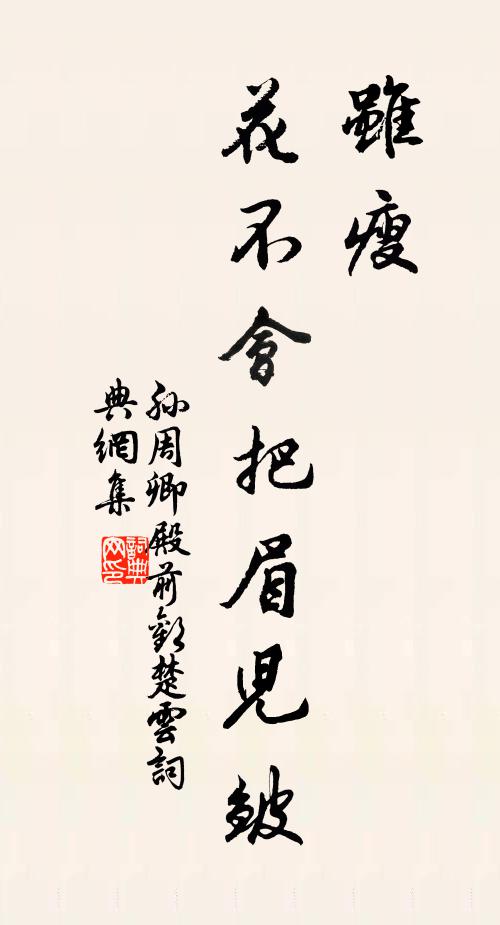 雖瘦
花不會把眉兒皺
孫周卿殿前歡楚雲詞
典網集
詞典
网印